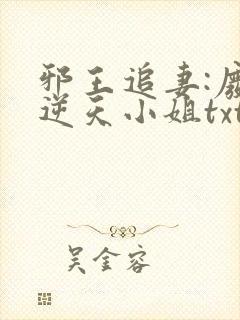 邪王追妻:废
逆天小姐txt
吴金容